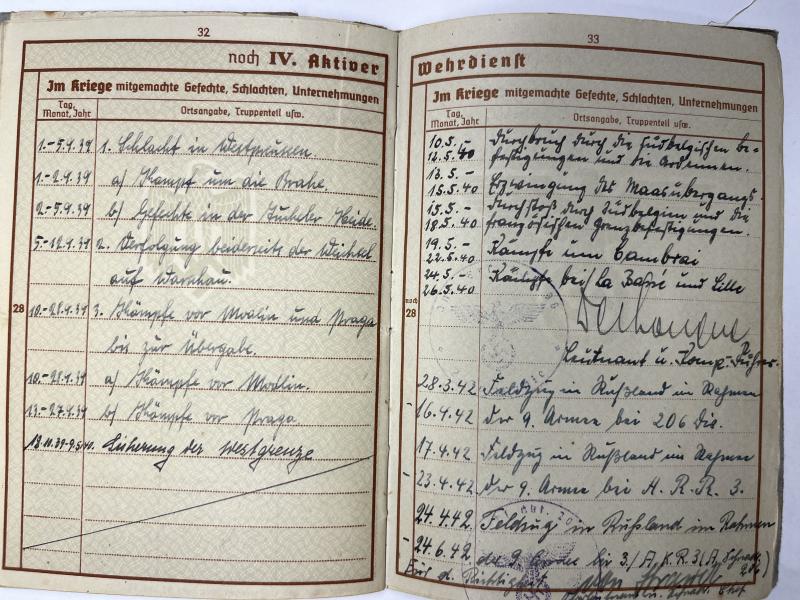 32
noch IV. Aktiver
Im Kriege mitgemachte Gefechte, Schlachten, Unternehmungen
Tag, Monat, Jahr
Ortsangabe, Truppenteil usw.
1.-5.9.39 1. Schlacht in Westpreussen.
1.-2.9.39 a) Kampf um die Brahe.
2.-5.9.39 b) Gefechte in der Tucheler Heide.
5.-12.9.39 2. Verfolgung beiderseits der Weichsel
auf Warschau.
28
10.-28.9.39 3. Kämpfe vor Modlin und Praga
bis zur Übergabe.
10.-28.9.39 a) Kämpfe vor Modlin.
13.-27.9.39 b) Kämpfe vor Praga.
13.11.39-9.5.40. Sicherung der Westgrenze
33
Wehrdienst
Im Kriege mitgemachte Gefechte, Schlachten, Unternehmungen
Tag, Monat, Jahr
Ortsangabe, Truppenteil usw.
10.5.- Durchbruch durch die südbelgischen Be-
12.5.40 festigungen und die Ardennen.
13.5.- Erzwingung des Maasübergangs.
15.5.40
15.5.- Durchstoß durch Südbelgien und die
18.5.40 französischen Grenzbefestigungen.
19.5.- Kämpfe um Cambrai
22.5.40
24.5.- Kämpfe bei La Bassé und Lille
26.5.40
noch 28
Leutnant u. Komp.-Führer.
28.3.42 Feldzug in Rußland im Rahmen
- 16.4.42 der 9. Armee bei 206 Div.
17.4.42 Feldzug in Rußland im Rahmen
- 23.4.42 der 9. Armee bei A. R. R. 3.
24.4.42 Feldzug in Rußland im Rahmen
- 24.6.42 der 9. Armee bei 3./A.K.R.3
Für d. Richtigkeit